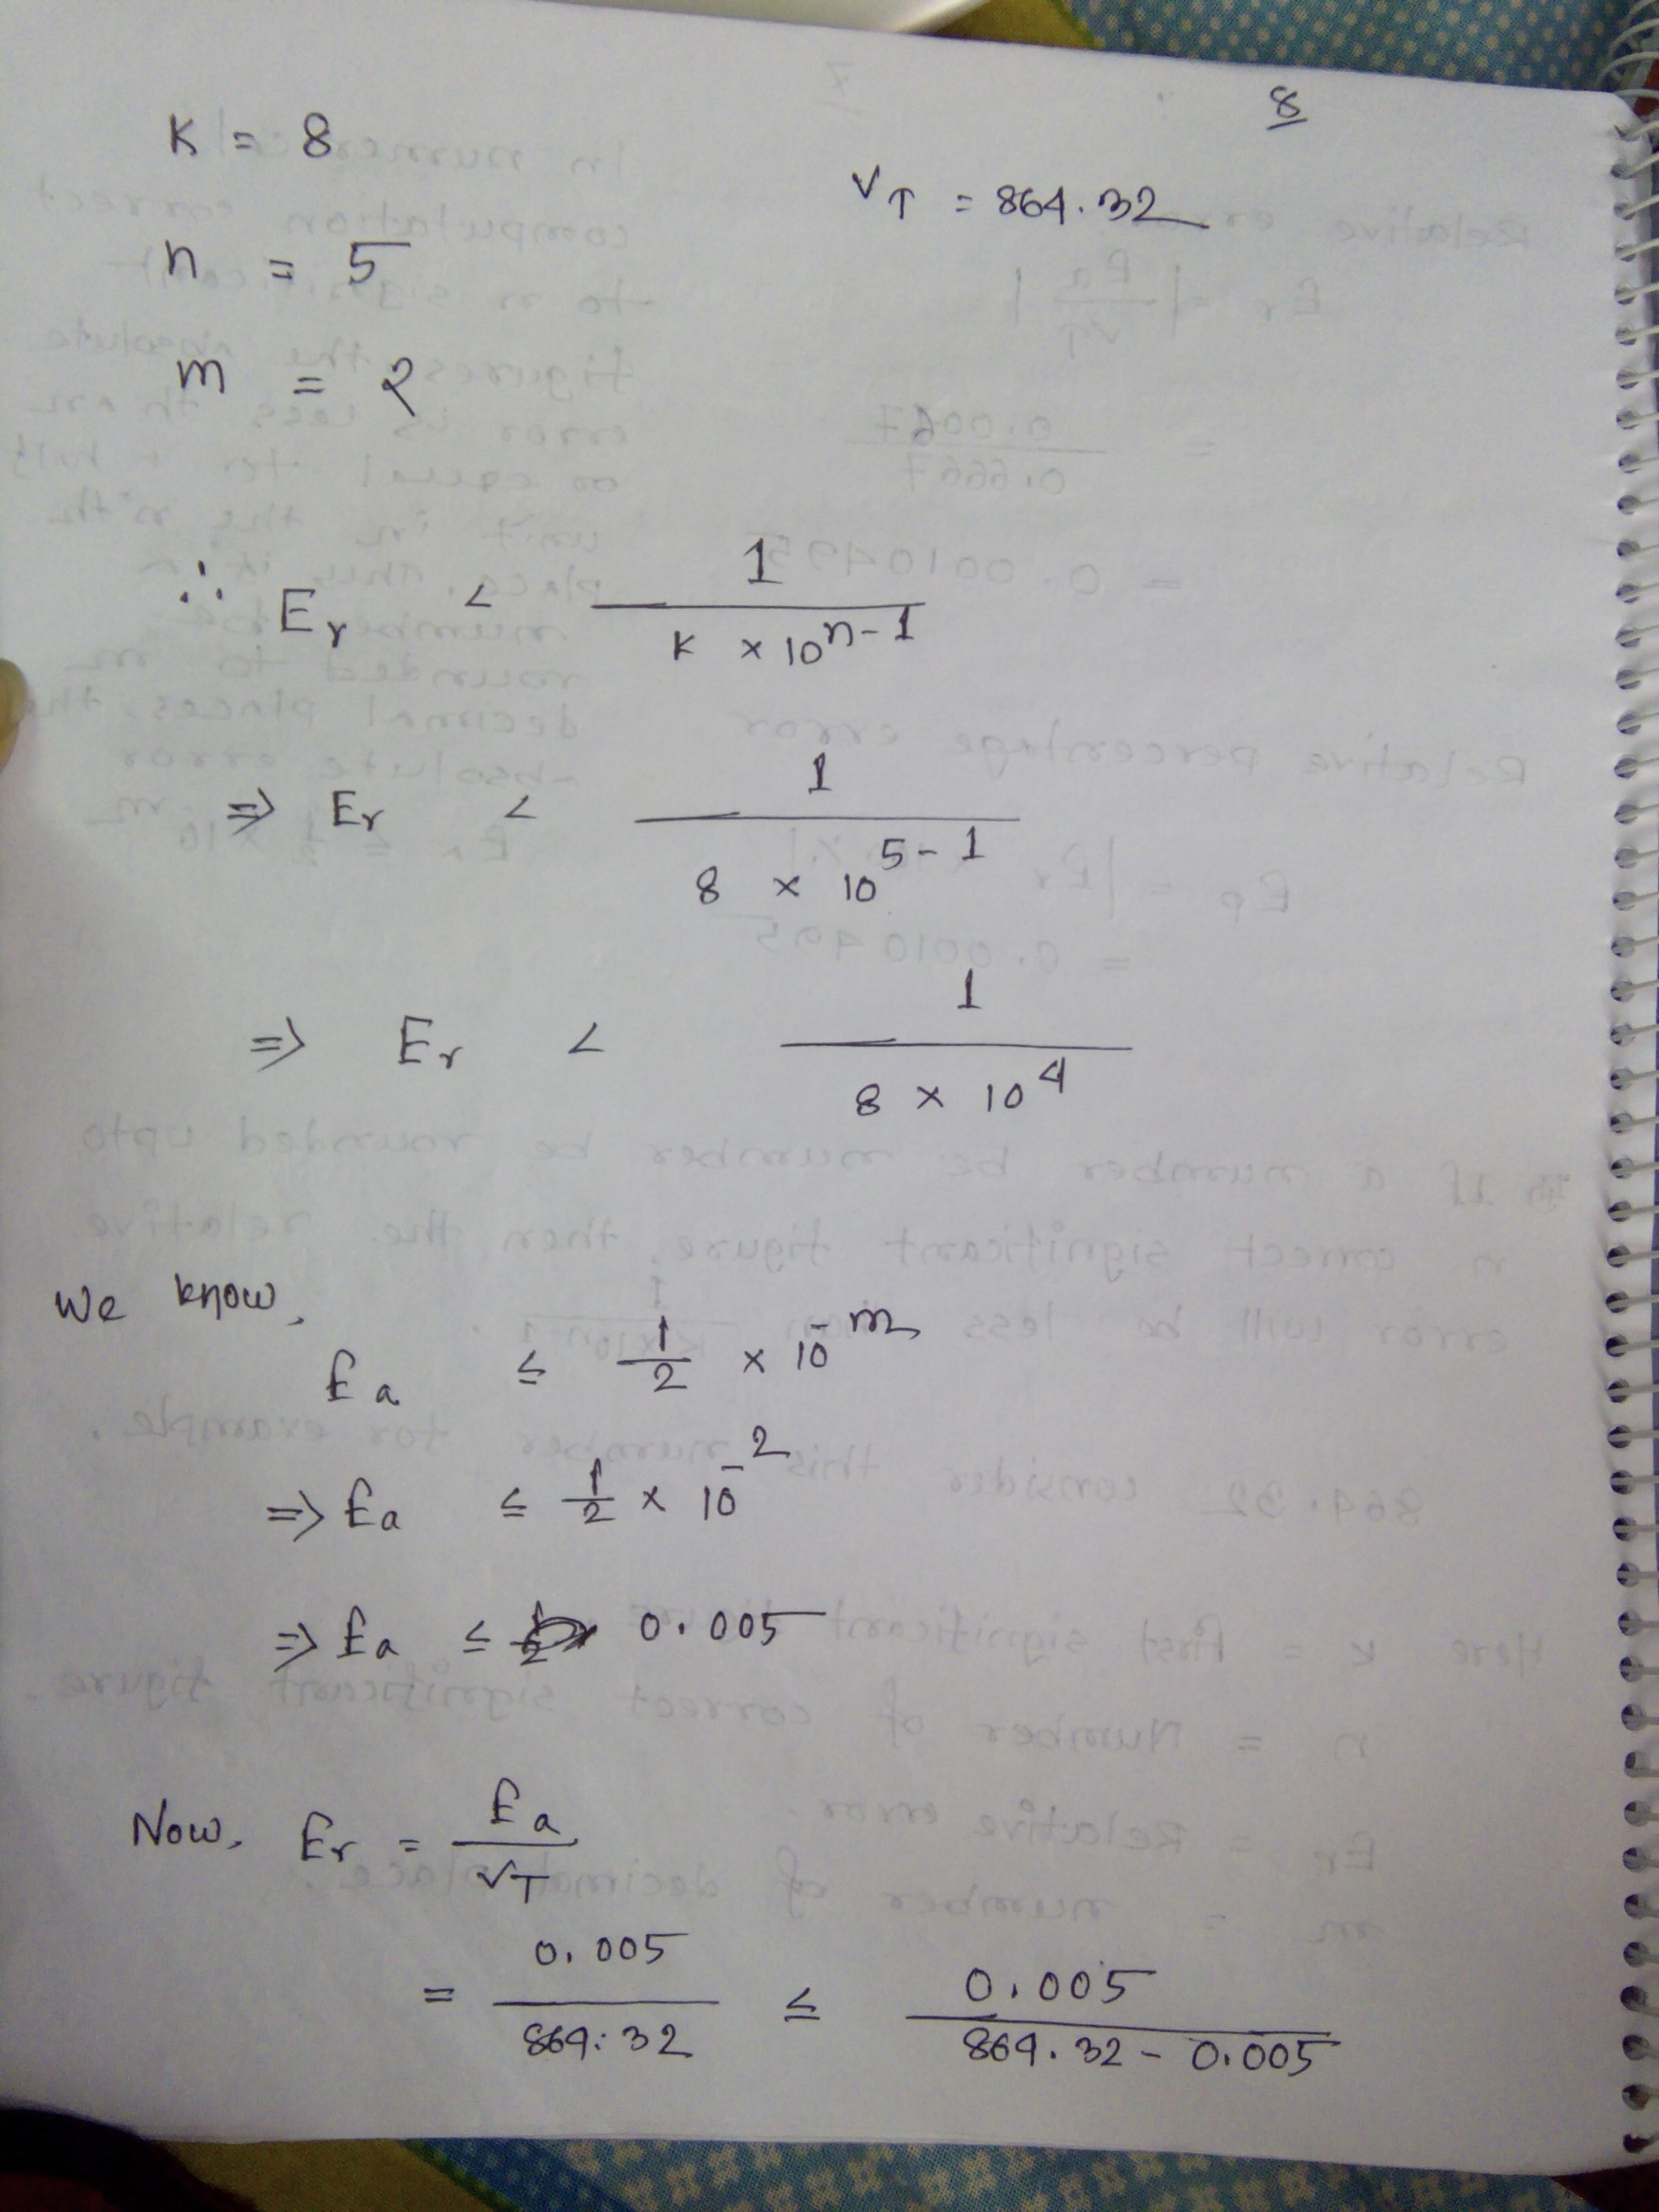 8
K = 8
V_T = 864.32
n = 5
m = 2
∴ E_r < 1 / (K × 10^{n-1})
⇒ E_r < 1 / (8 × 10^{5-1})
⇒ E_r < 1 / (8 × 10^4)
We know,
E_a ≤ 1/2 × 10^{-m}
⇒ E_a ≤ 1/2 × 10^{-2}
⇒ E_a ≤ 0.005
Now, E_r = E_a / V_T
= 0.005 / 864.32 ≤ 0.005 / (864.32 - 0.005)